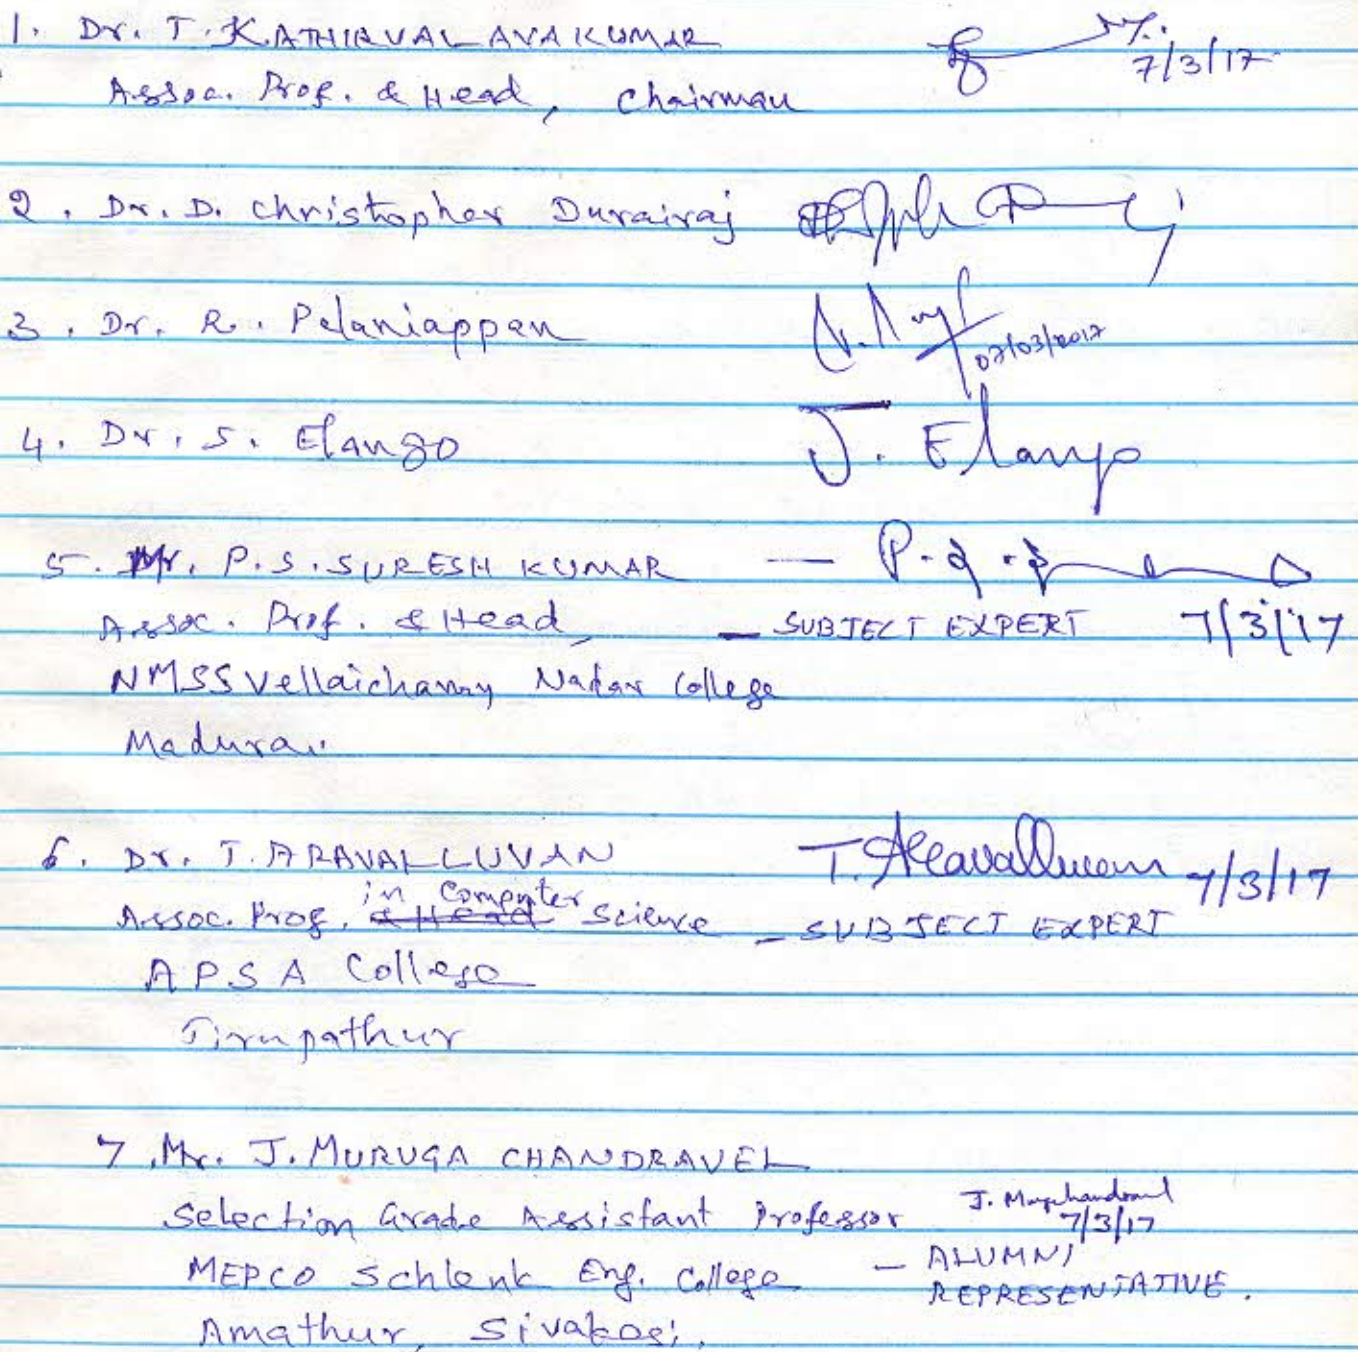 1. Dr. T. KATHIRVALAVAKUMAR
7/3/17
Assoc. Prof. & Head, Chairman
2. Dr. D. Christopher Durairaj
3. Dr. R. Palaniappan
07/03/2017
4. Dr. S. Elango J. Elango
5. Mr. P.S. SURESH KUMAR —
Assoc. Prof. & Head, — SUBJECT EXPERT 7/3/17
NMSS Vellaichamy Nadar College
Madurai.
6. Dr. T. ARAVALLUVAN T. Aravalluvan 7/3/17
in Computer
Assoc. Prof. & Head Science – SUBJECT EXPERT
APSA College
Tirupathur
7. Mr. J. MURUGA CHANDRAVEL
Selection Grade Assistant Professor
7/3/17
MEPCO Schlenk Eng. College – ALUMNI
REPRESENTATIVE.
Amathur, Sivakasi.